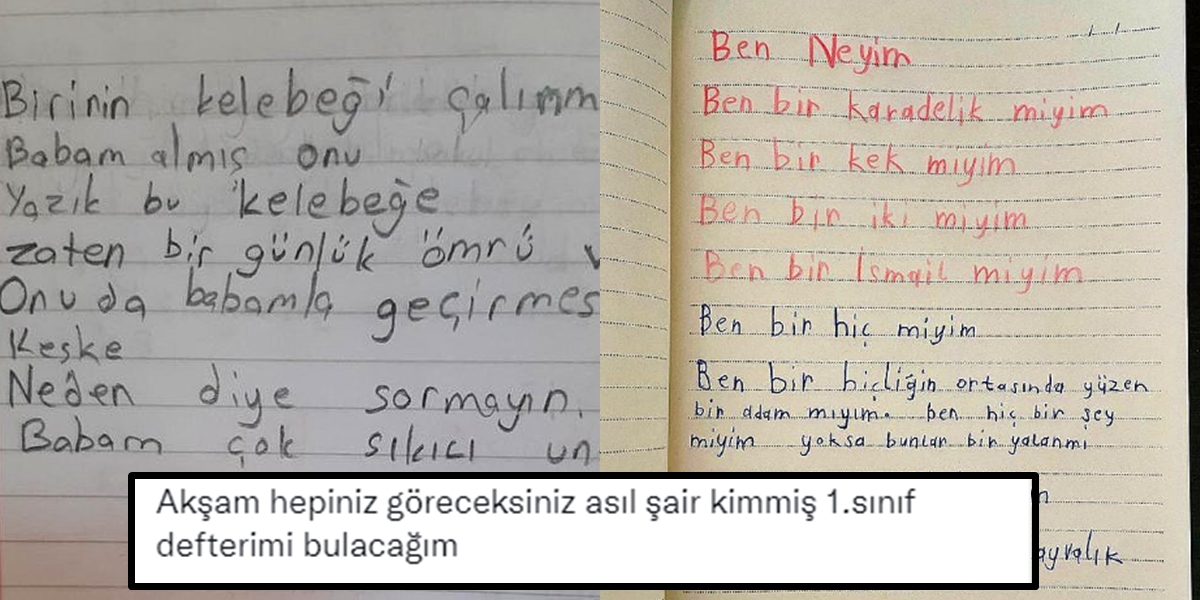 Birinin kelebeği çalınm
Babam almış onu
Yazık bu kelebeğe
zaten bir günlük ömrü v
Onu da babamla geçirmes
Keşke
Neden diye sormayın.
Babam çok sıkıcı un
Ben Neyim
Ben bir karadelik miyim
Ben bir kek miyim
Ben bir iki miyim
Ben bir İsmail miyim
Ben bir hiç miyim
Ben bir hiçliğin ortasında yüzen
bir adam mıyım. ben hiç bir şey
miyim yoksa bunlar bir yalanmı
n
ayvalık
Akşam hepiniz göreceksiniz asıl şair kimmiş 1.sınıf
defterimi bulacağım